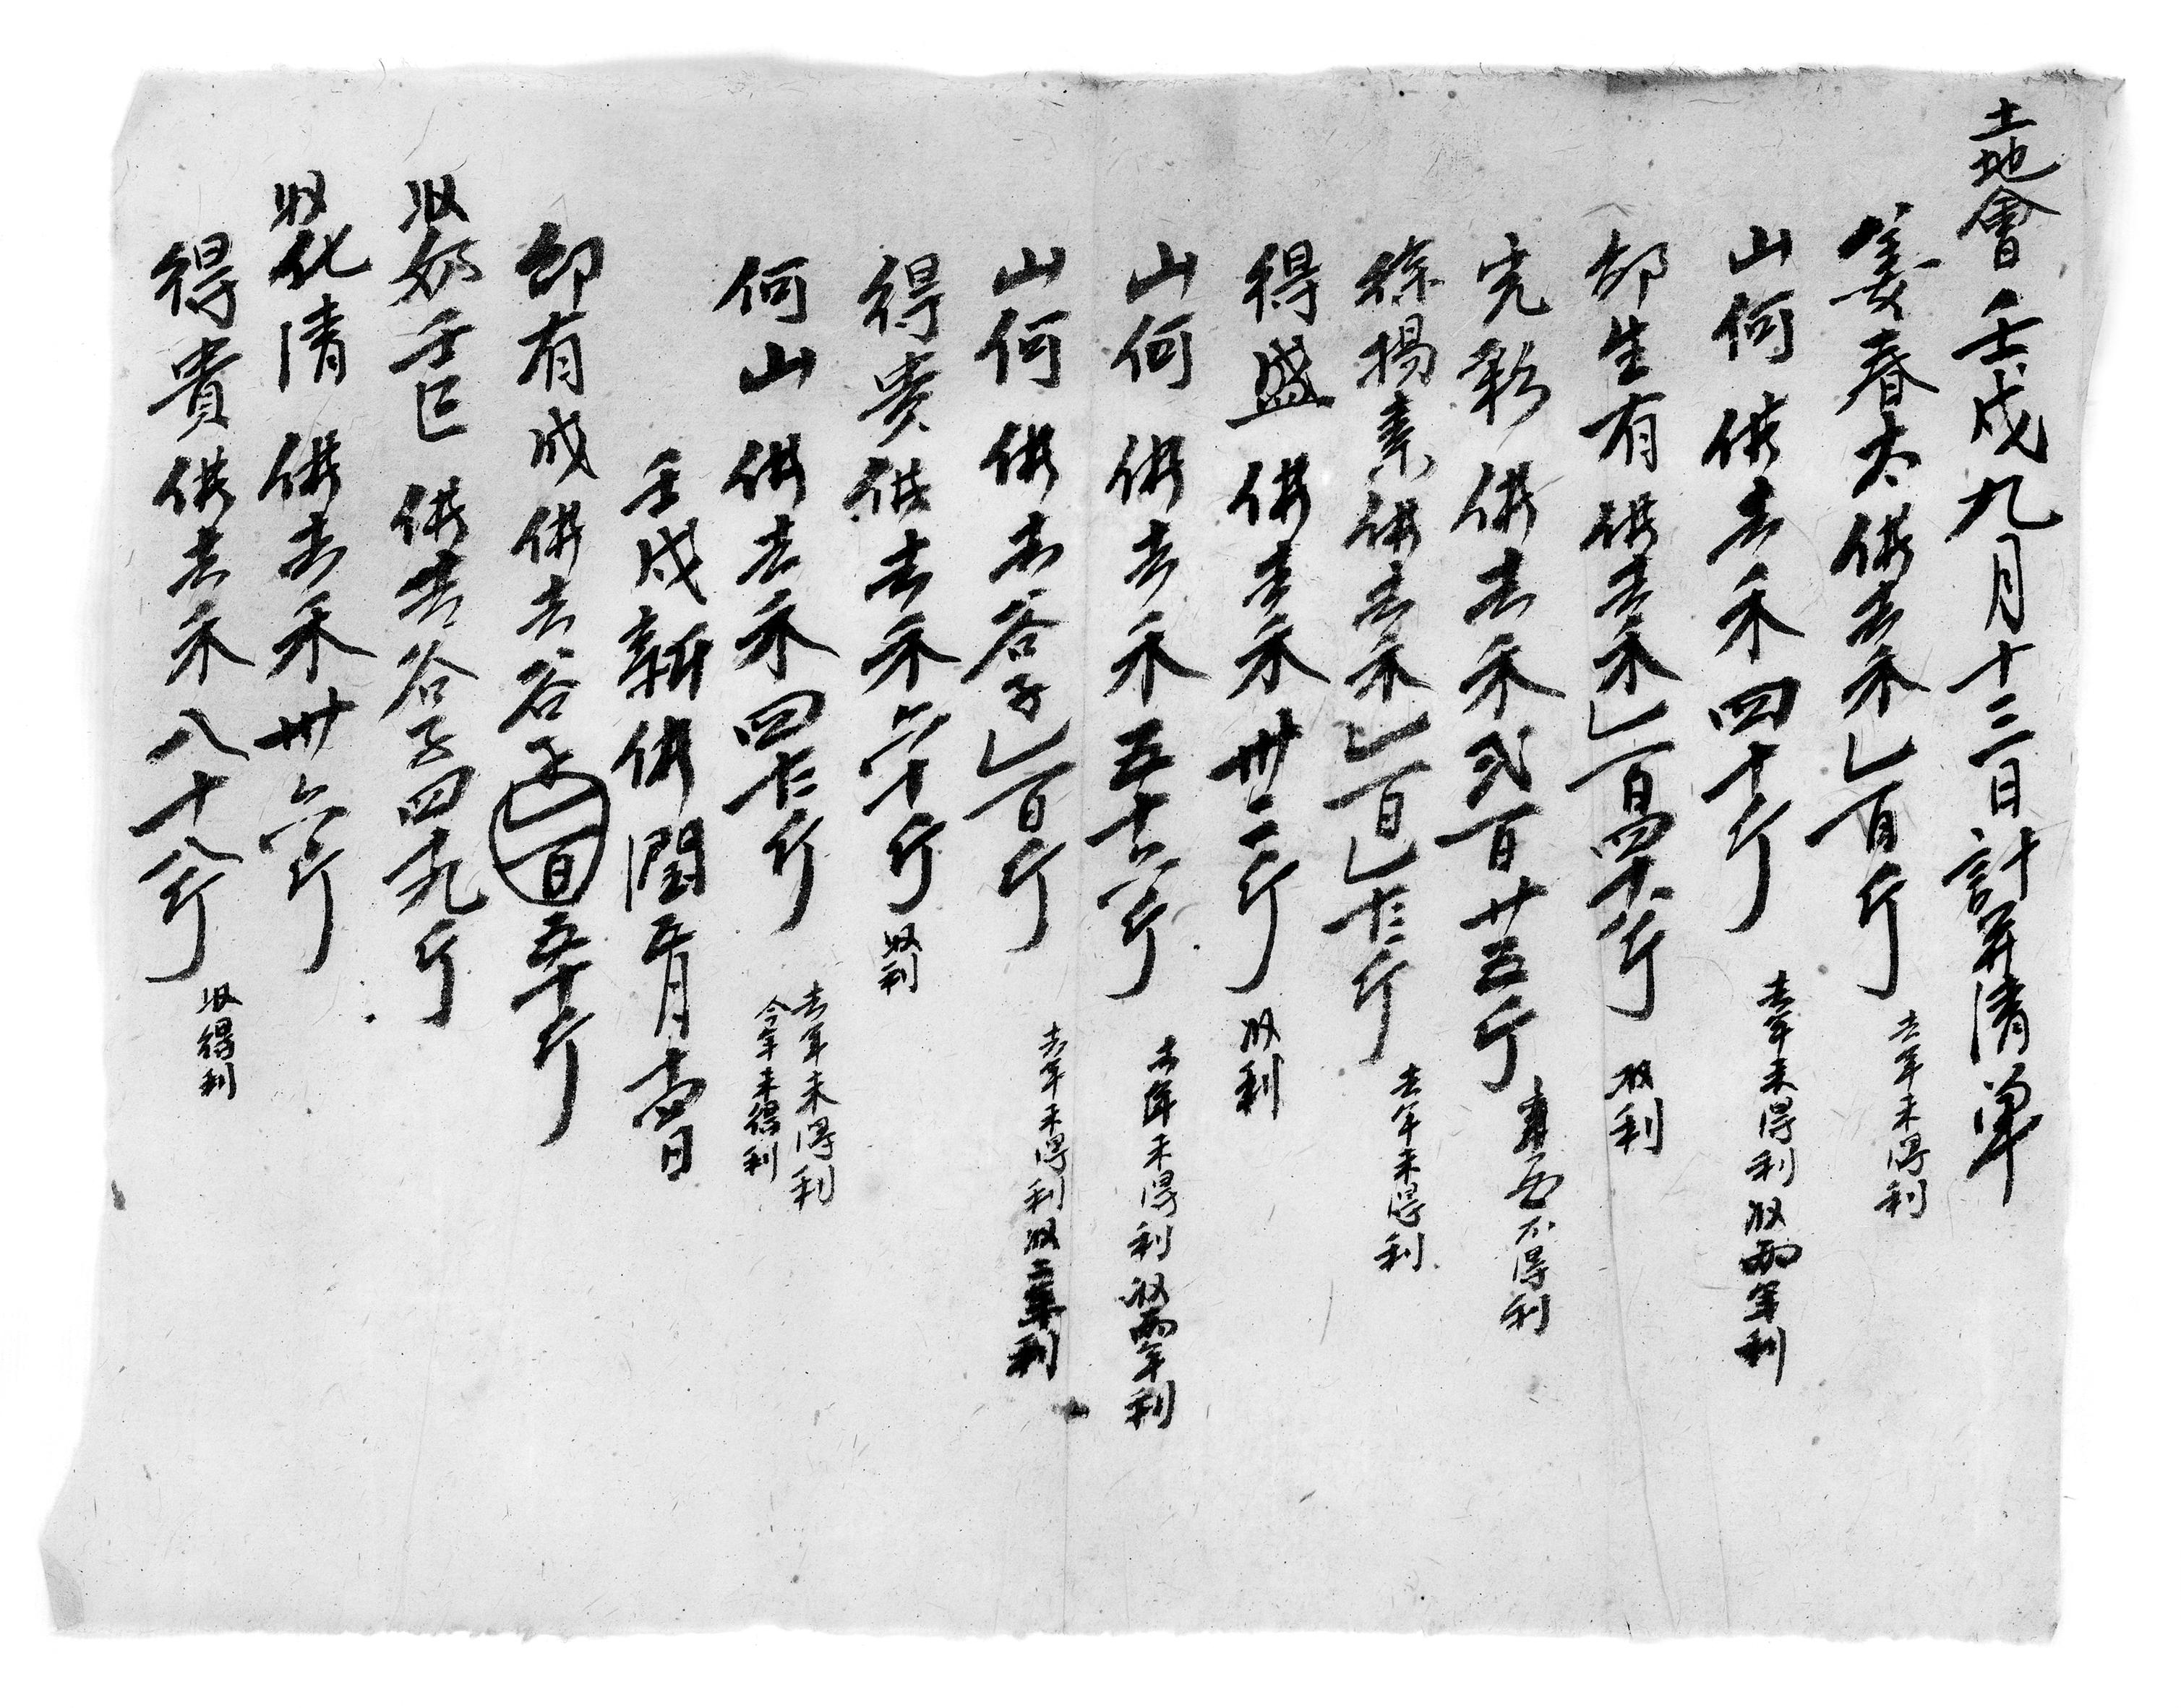 土地會壬戌九月十三日計算清单
姜春太供去禾乚百斤 去年未得利
山何供去禾四十斤 去年未得利 收両年利
邰生有供去禾乚百四十八斤 收利
完彩供去禾弍百廿五斤 不得利
徐揚素供去禾乚百乚十三斤 去年未得利
得盛供去禾卅二斤 收利
山何供去禾五十六斤 去年未得利 收両年利
山何供去谷子乚百斤 去年未得利 收二年利
得贵供去禾六十斤 收利
何山供去禾四十三斤 去年未得利
今年未得利
壬戌新供閏五月十四日
邰有成供去谷子乚百五十斤
收 供去谷子四十九斤
收化清供去禾卅六斤
得貴供去禾八十八斤 收得利